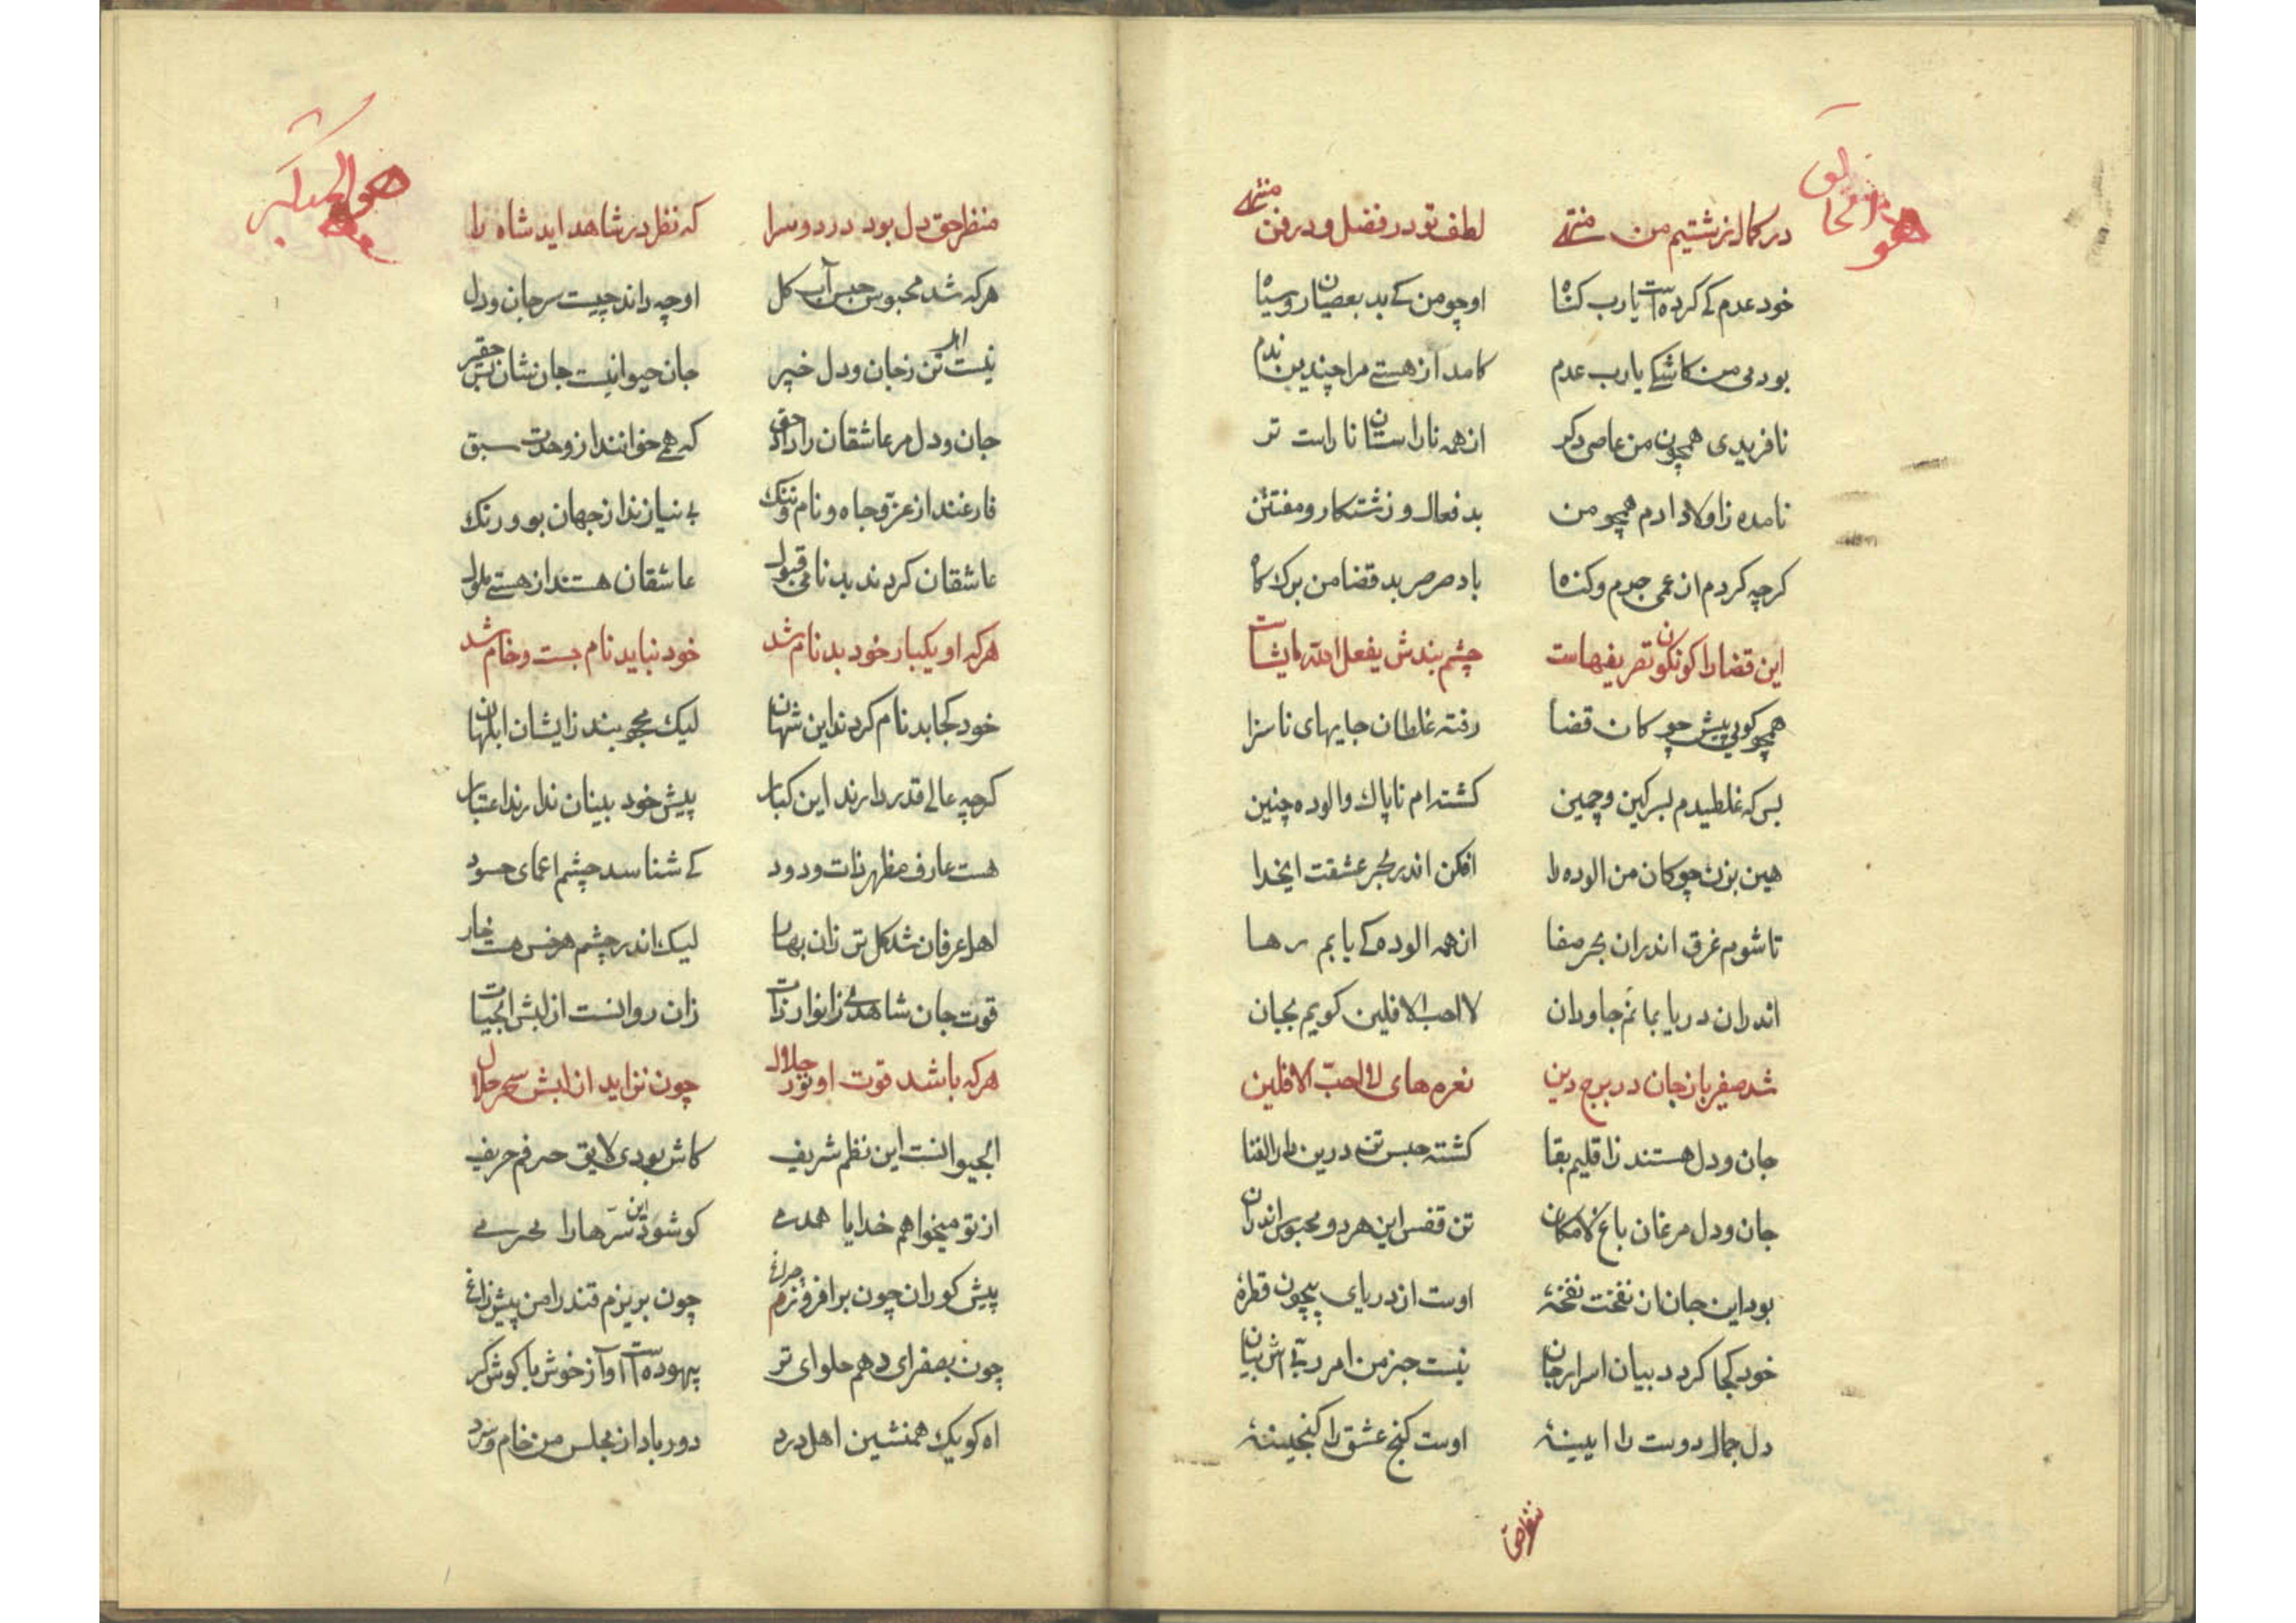 هو الخالق
در کمال زشتیم من منتهے لطف تو در فضل و در فن منتهے
خود عدم کے کرده است یارب کناه او چو من کے بد بعصیان روسیاه
بودمی من کاشکے یارب عدم کامد از هستے مرا چندین ندم
نافریدی همچون من عاصی دکر از همه ناراستان ناراست تر
نامده ز اولاد ادم همچو من بدفعال و زشتکار و مفتتن
کرچه کردم از عمی جرم و کناه باد صرصر بد قضا من برک کاه
این قضا را کونکون تصریفهاست چشم بندش یفعل الله مایشاست
همچو کویی پیش چوکان قضا رفته غلطان جایهای ناسزا
بس که غلطیدم بسرکین و چمین کشته ام ناپاک و الوده چنین
هین بزن چوکان من الوده را افکن اندر بحر عشقت ایخدا
تا شوم غرق اندران بحر صفا از همه الوده کے یابم رها
اندران دریا بمانم جاودان لا احب الافلین کویم بجان
شد صفیر باز جان در برج دین نعره های لا احب الافلین
جان و دل هستند ز اقلیم بقا کشته حبس تن درین دار الفنا
جان و دل مرغان باغ لامکان تن قفس این هر دو محبوس اندران
بود این جان از نفخت نفخهٔ اوست از دریای بیچون قطرهٔ
خود کجا کردد بیان اسرار جان نیست جز من امر ربے اش بیان
دل جمال دوست را ایینهٔ اوست کنج عشق را کنجینهٔ
منظر حق
هو الله اکبر
منظر حق دل بود در دو سرا که نظر در شاهد اید شاه را
هرکه شد محبوس حبس آب کل او چه داند چیست سر جان و دل
نیست اهل تن ز جان و دل خبیر جان حیوانیست جان نشان بس حقیر
جان و دل مر عاشقان را داد حق که همے خوانند از وحدت سبق
فارغند از عزّ و جاه و نام و ننک بے نیازند از جهان بو و رنک
عاشقان کردند بدنامی قبول عاشقان هستند از هستے ملول
هرکه او یکبار خود بدنام شد خود نباید نام جست و خام شد
خود کجا بدنام کردند این شهان لیک محجوبند ز ایشان ابلهان
کرچه عالے قدر دارند این کبار پیش خود بینان ندارند اعتبار
هست عارف مظهر ذات ودود کے شناسد چشم اعمای حسود
اهل عرفان شد کل تر زان بهار لیک اندر چشم هر خس هست خار
قوت جان شاهدے ز انوار ذات زان روانست از لبش ابحیات
هرکه باشد قوت او نور جلال چون نزاید از لبش سحر حلال
ابحیوانست این نظم شریف کاش بودی لایق حرفم حریف
از تو میخواهم خدایا همدمے کو شود این سرّها را محرمے
پیش کوران چون برافروزم چراغ چون بریزم قند را من پیش زاغ
چون بصفرای دهم حلوای تر بیهوده است آواز خوش با کوش کر
اه کو یک همنشین اهل درد دور باد از مجلس من خام و سرد